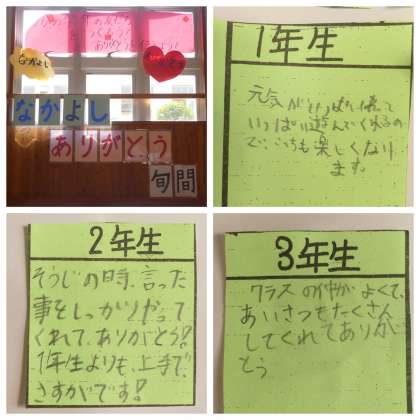 なかよし
なかよし
ありがとう
旬間
1年生
元気がいっぱい
いっぱい遊んでくれるの
で、こっちも楽しくなり
ます。
2年生
そうじの時、言った
事をしっかりやって
くれて、ありがとう!
1年生よりも、上手で、
さすがです!
3年生
クラスの仲がよくて、
あいさつもたくさん
してくれてありが
とう